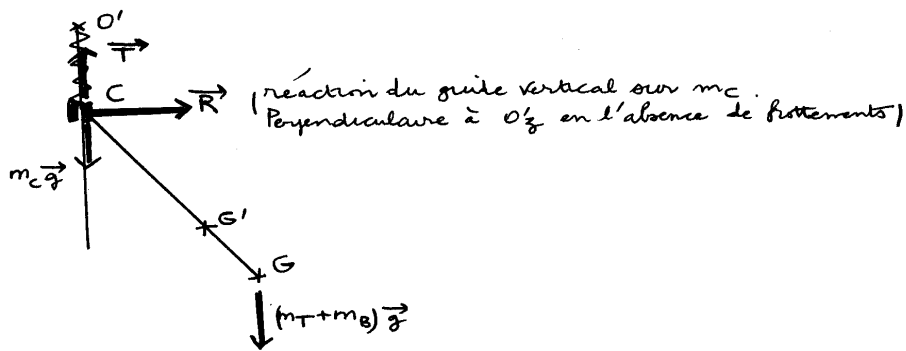 O'
T
C
R (réaction du guide vertical sur m_C.
Perpendiculaire à O'z en l'absence de frottements)
m_C g
G'
G
(m_T + m_B) g